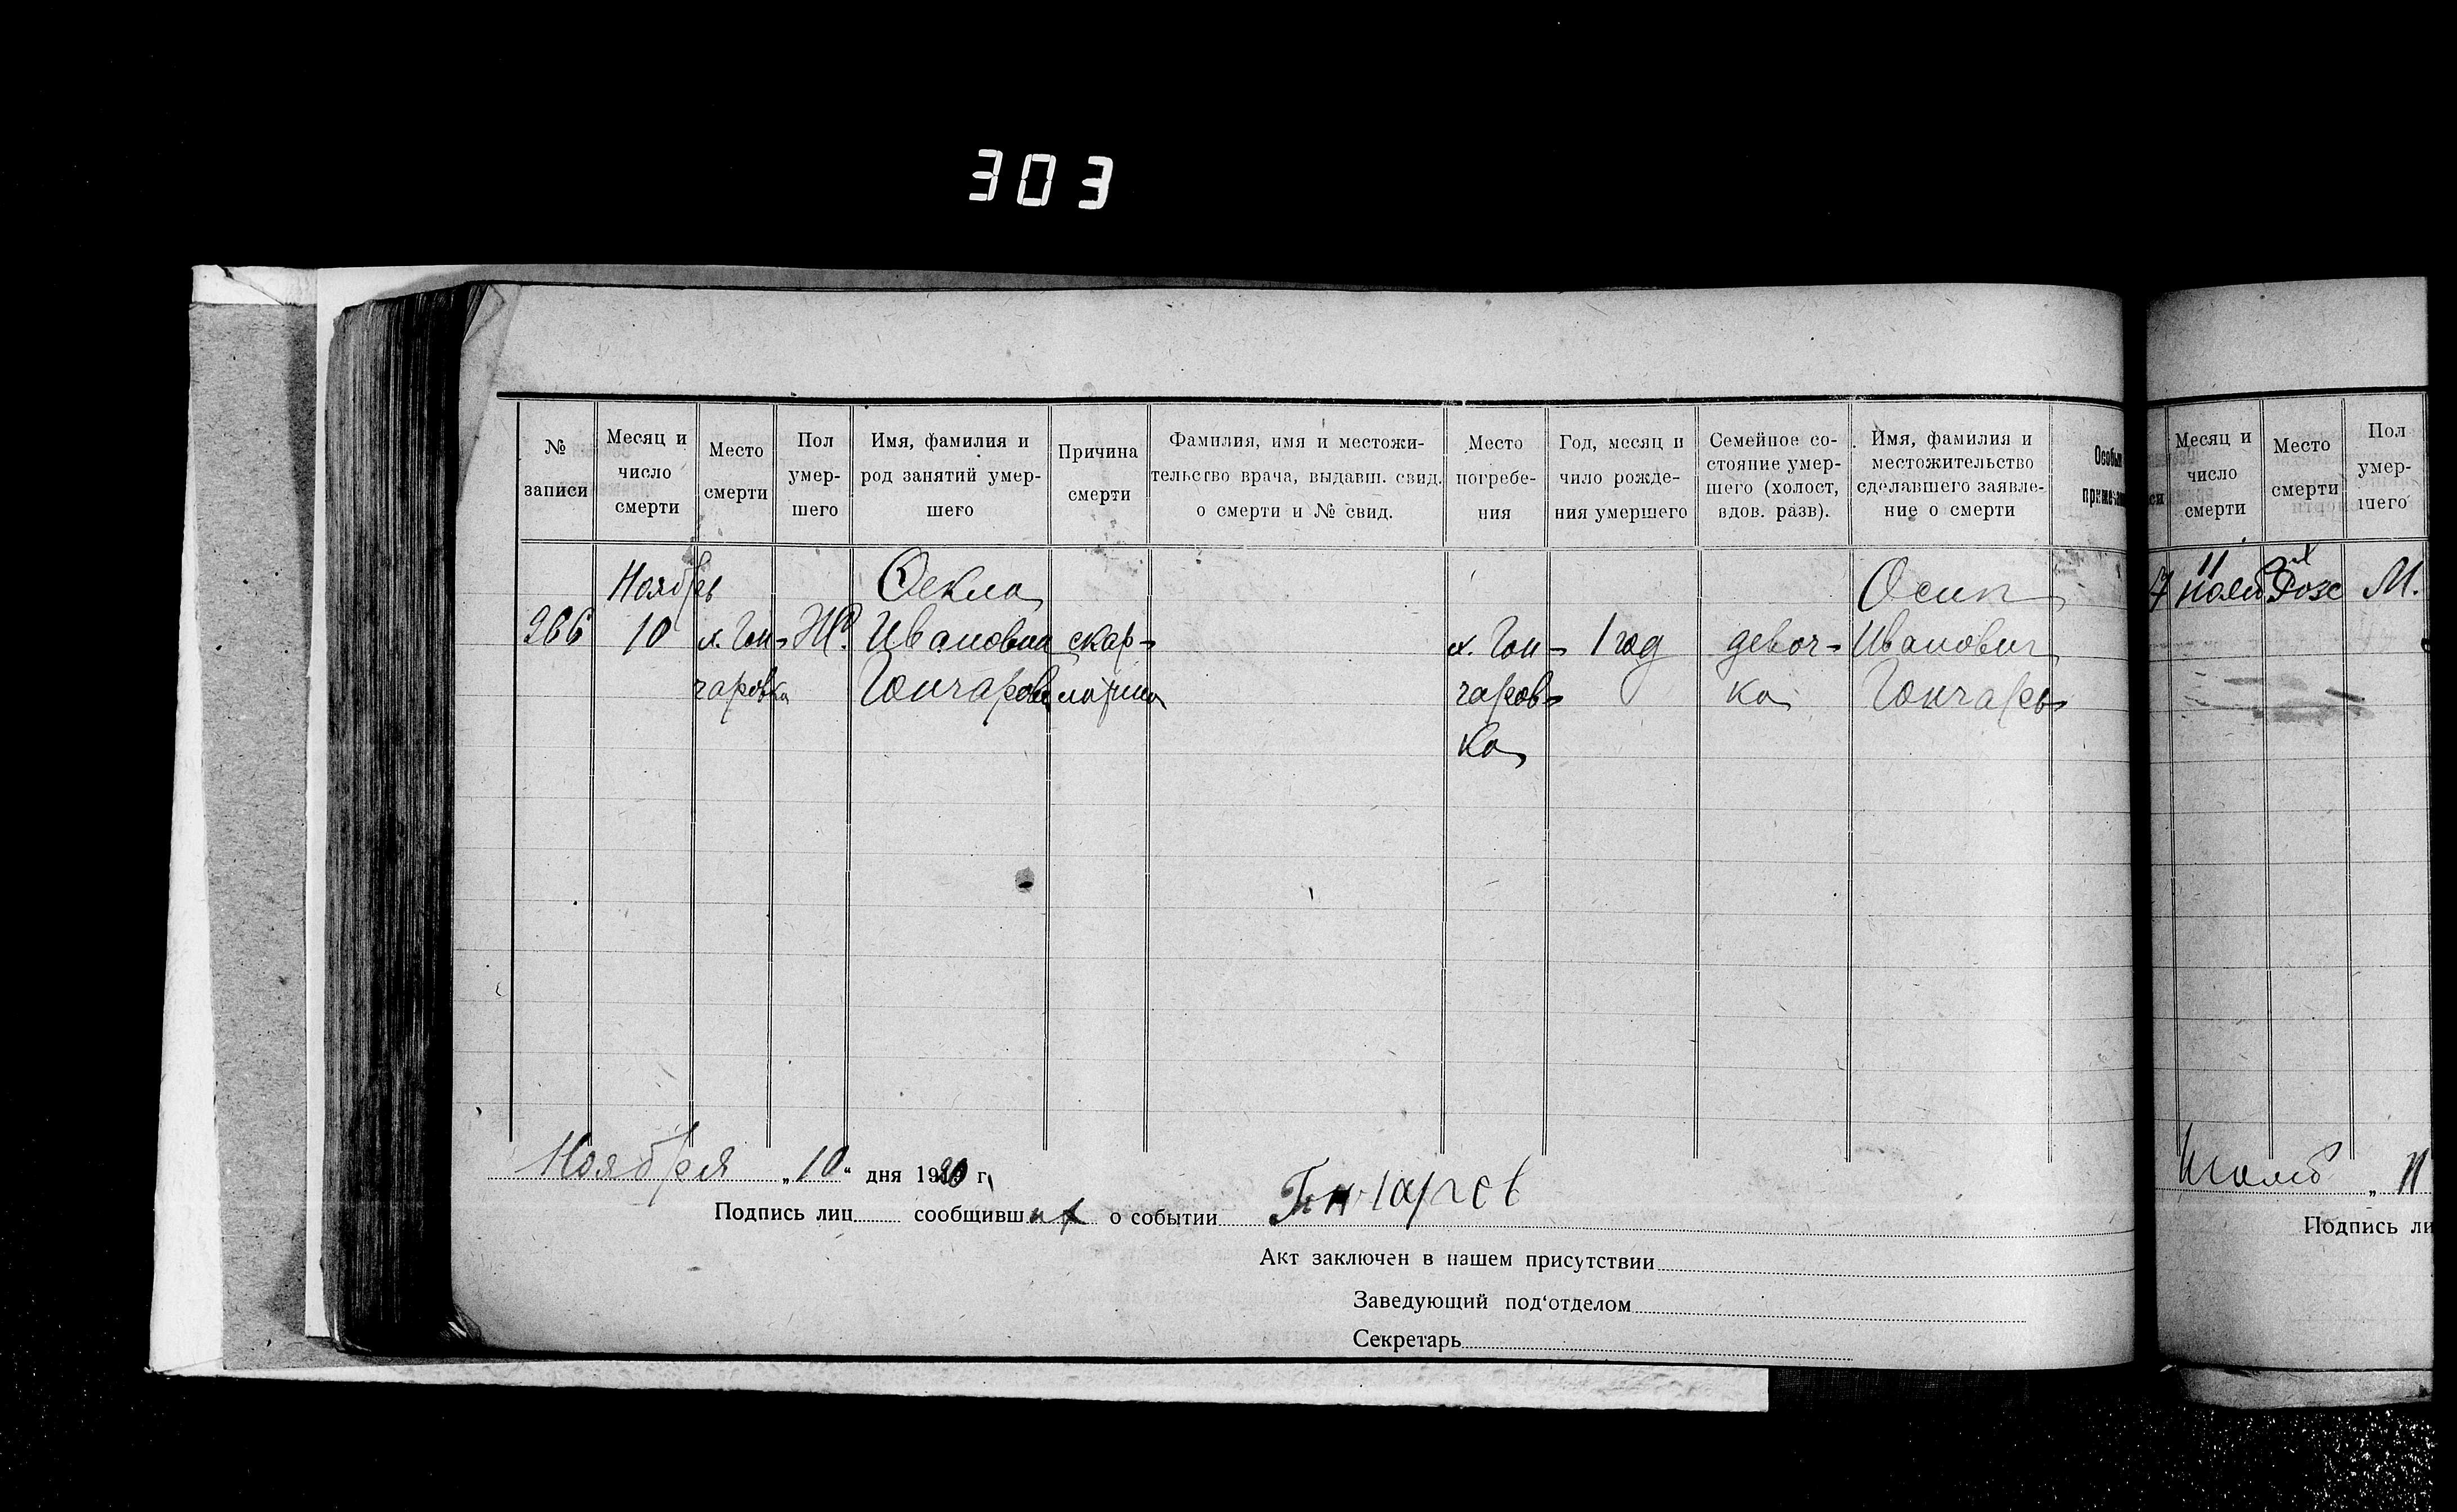 303
№ записи
Месяц и число смерти
Место смерти
Пол умер-шего
Имя, фамилия и род занятий умер-шего
Причина смерти
Фамилия, имя и местожи-тельство врача, выдавш. свид. о смерти и № свид.
Место погребе-ния
Год, месяц и чило рожде-ния умершего
Семейное со-стояние умер-шего (холост, вдов. разв).
Имя, фамилия и местожительство сделавшего заявле-ние о смерти
Ноябрь Оекла Осип
266 10 х. Гон- Ж. Ивановна скар- х. Гон- 1 год девоч- Иванович
чаровка Гончарова латина чаров- ка Гончаров
ка
Ноября „10“ дня 1920 г.
Подпись лиц сообщивших о событии Гончаров
Акт заключен в нашем присутствии
Заведующий под'отделом
Секретарь
Месяц и число смерти
Место смерти
Пол умер-шего
11 М.
„11
Подпись ли